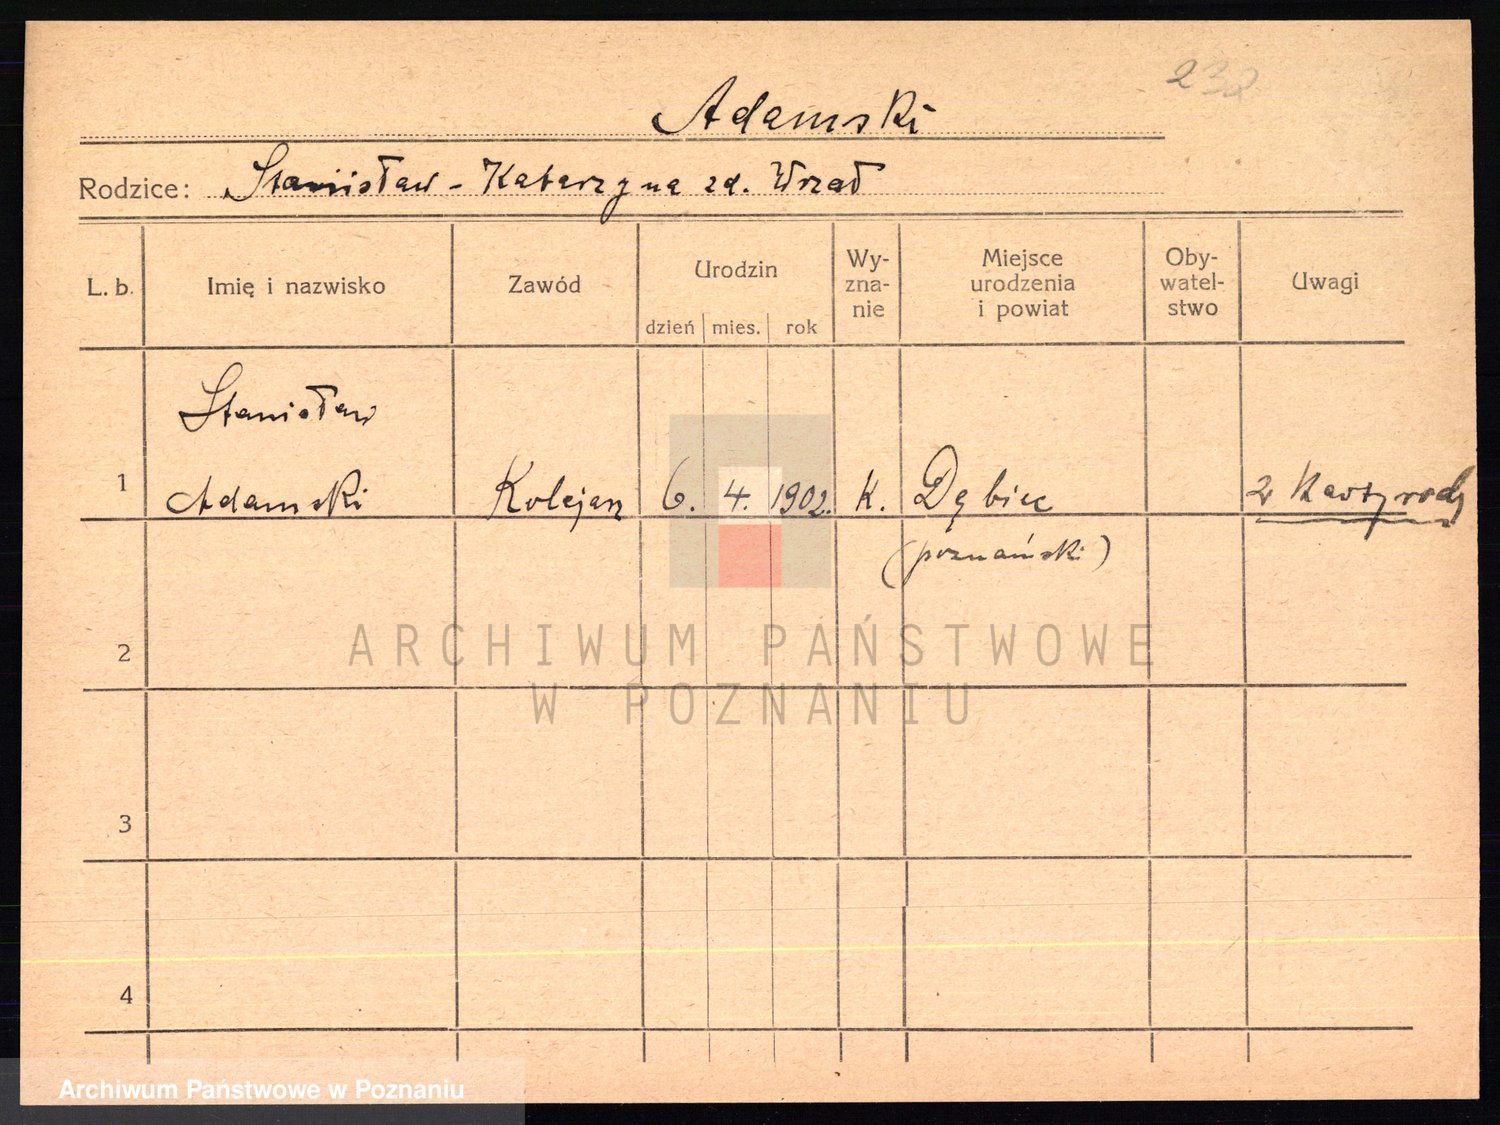 232
Adamski
Rodzice: Stanisław - Katarzyna zd. Wrzał
L. b. Imię i nazwisko Zawód Urodzin dzień mies. rok Wy-zna-nie Miejsce urodzenia i powiat Oby-watel-stwo Uwagi
Stanisław
1 Adamski Kolejarz 6. 4. 1902. K. Dębiec 2
(poznański)
2
ARCHIWUM PAŃSTWOWE
W POZNANIU
3
4
Archiwum Państwowe w Poznaniu